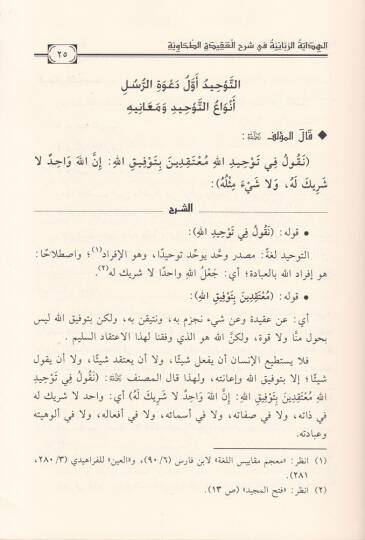 الهداية الربانية في شرح العقيدة الطحاوية
٢٥
التَّوْحِيدُ أَوَّلُ دَعْوَةِ الرُّسُلِ
أَنْوَاعُ التَّوْحِيدِ وَمَعَانِيهِ
◆ قَالَ المُؤلف رحمه الله :
(نَقُولُ فِي تَوْحِيدِ اللهِ مُعْتَقِدِينَ بِتَوْفِيقِ اللهِ: إِنَّ اللهَ وَاحِدٌ لا
شَرِيكَ لَهُ، وَلا شَيْءَ مِثْلُهُ):
الشرح
• قوله: (نَقُولُ فِي تَوْحِيدِ اللهِ):
التوحيد لغةً: مصدر وحَّد يوحِّد توحيدًا، وهو الإفراد(١)؛ واصطلاحًا:
هو إفراد الله بالعبادة؛ أي: جَعْلُ اللهِ واحدًا لا شريك له(٢).
• قوله: (مُعْتَقِدِينَ بِتَوْفِيقِ اللهِ):
أي: عن عقيدة وعن شيء نجزم به، ونتيقن به، ولكن بتوفيق الله ليس
بحول منَّا ولا قوة، ولكنَّ الله هو الذي وفقنا لهذا الاعتقاد السليم .
فلا يستطيع الإنسان أن يفعل شيئًا، ولا أن يعتقد شيئًا، ولا أن يقول
شيئًا؛ إلا بتوفيق الله وإعانته، ولهذا قال المصنف رحمه الله: (نَقُولُ فِي تَوْحِيدِ اللهِ
مُعْتَقِدِينَ بِتَوْفِيقِ اللهِ: إِنَّ اللهَ وَاحِدٌ لا شَرِيكَ لَهُ) أي: واحد لا شريك له
في ذاته، ولا في صفاته، ولا في أسمائه، ولا في أفعاله، ولا في ألوهيته
وعبادته.
(١) انظر: «معجم مقاييس اللغة» لابن فارس (٦/ ٩٠)، و«العين» للفراهيدي (٣/ ٢٨٠،
٢٨١).
(٢) انظر: «فتح المجيد» (ص ١٣).